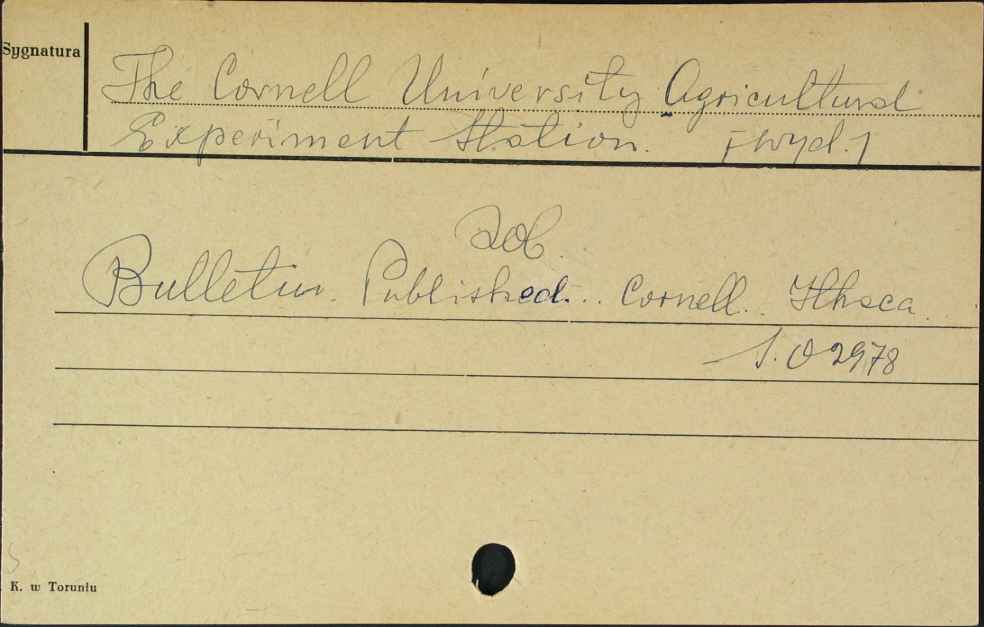 Sygnatura
The Cornell University Agricultural
Experiment Station. [wyd.]
zob.
Bulletin. Published... Cornell.. Ithaca.
S.02978
K. w Toruniu